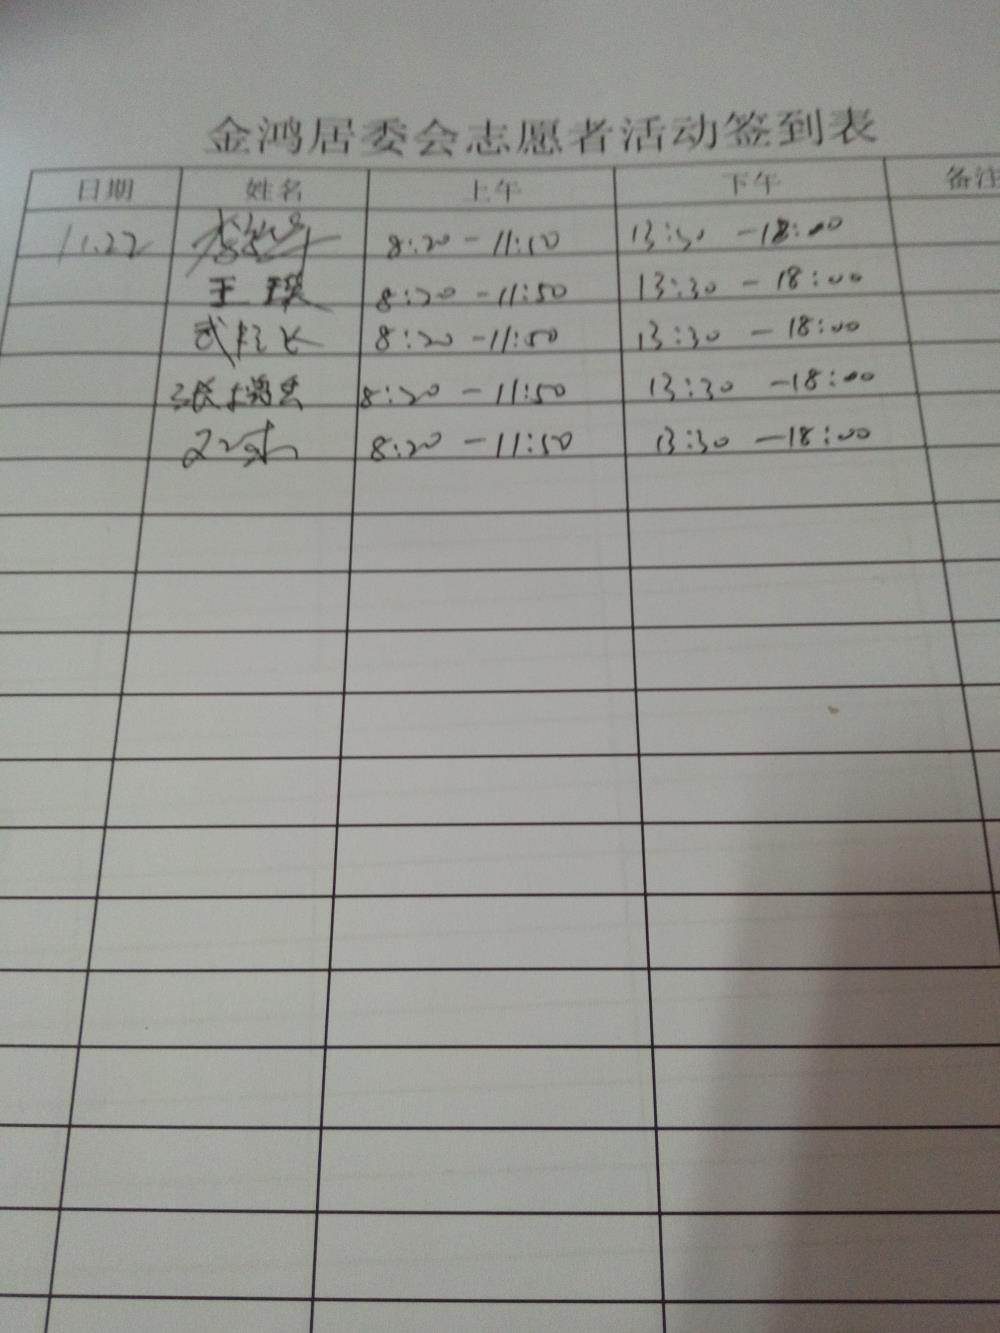 金鸿居委会志愿者活动签到表
日期 姓名 上午 下午 备注
11.22 8:20-11:50 13:30-18:00
王瑛 8:20-11:50 13:30-18:00
武 长 8:20-11:50 13:30-18:00
张 8:20-11:50 13:30-18:00
8:20-11:50 13:30-18:00